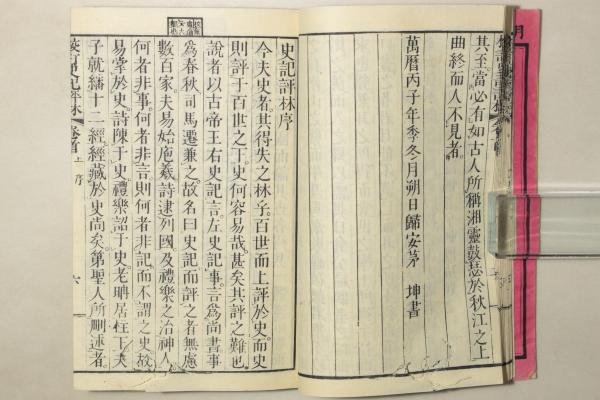 其至當必有如古人所稱湘靈鼓瑟於秋江之上
曲終而人不見者
萬曆丙子年季冬月朔日歸安茅 坤書
史記評林序
今夫史者其得失之林乎百世而上評於史而史
則評于百世之下史何容易哉甚矣其評之難也
說者以古帝王右史記言左史記事言爲尚書事
爲春秋司馬遷兼之故名曰史記而評之者無慮
數百家夫易始庖羲詩逮列國及禮樂之治神人
何者非事何者非言則何者非記而不謂之史故
易掌於史詩陳于史禮樂詔于史老聃居柱下夫
子就繙十二經經藏於史尚矣第聖人所刪述者
史記評林 卷首上 序 六